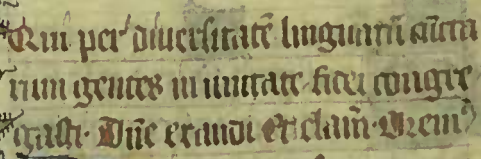 Qui per diuersitatē linguarū cūcta
rum gentes in unitate fidei congre
gasti. Dn̄e exaudi Et clam̄. Orem᾿